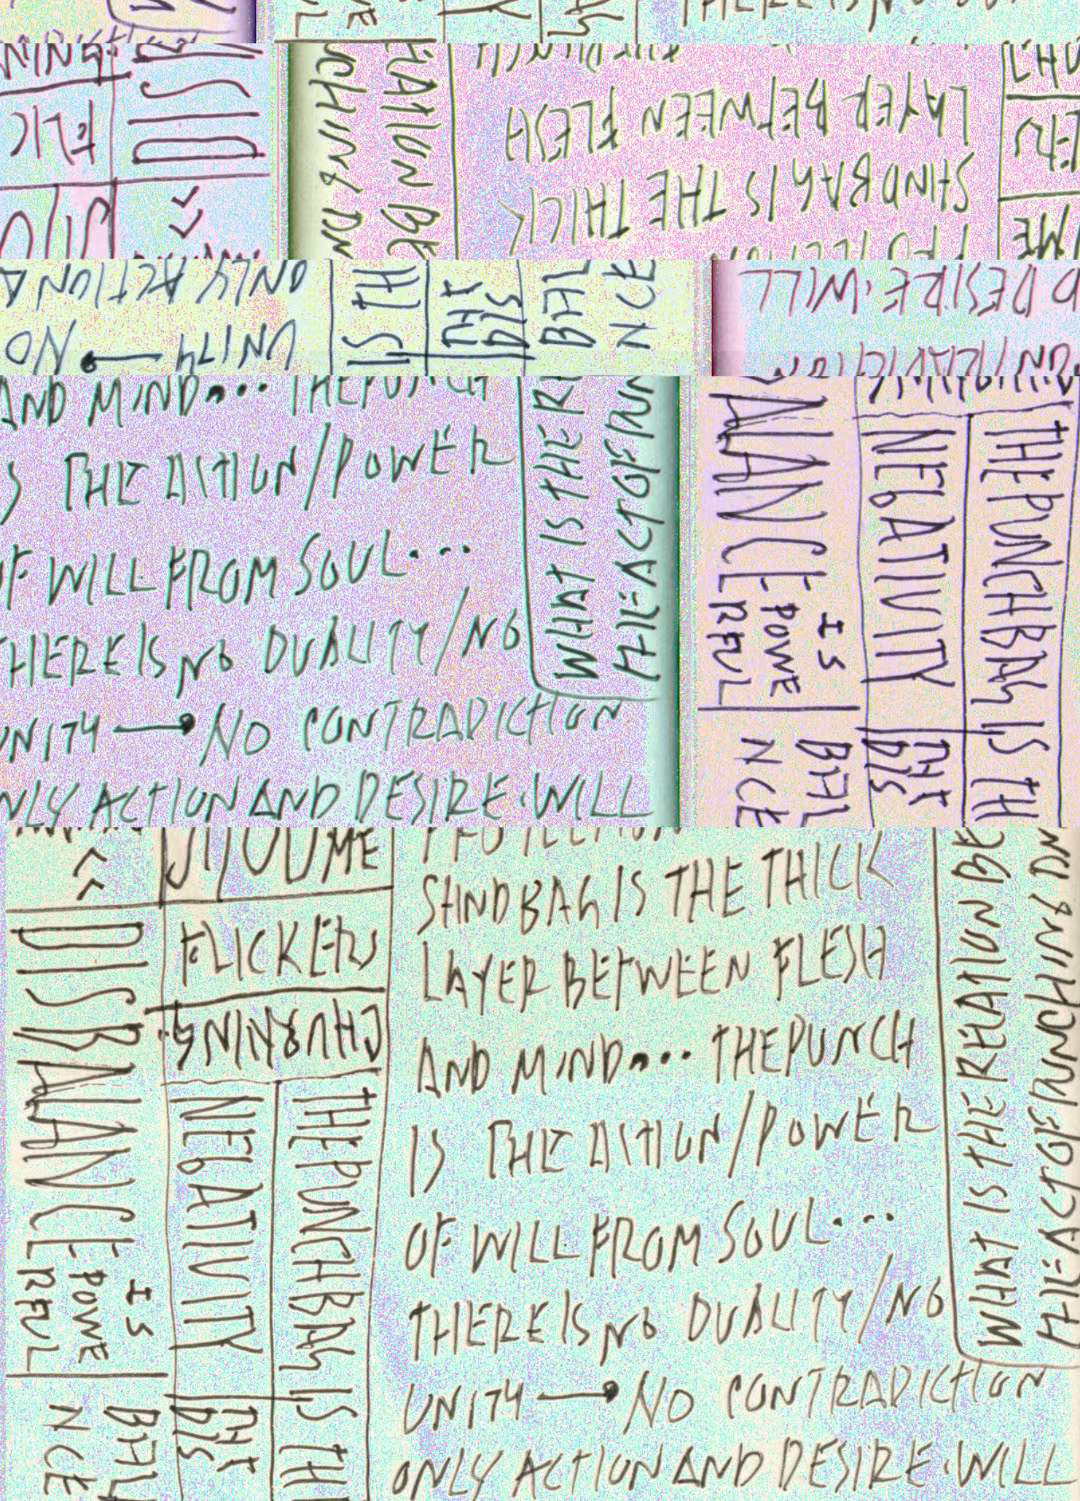 THERE IS NO DU
LAYER BETWEEN FLESH
SANDBAG IS THE THICK
ONLY ACTION A
UNITY → NO
IS TH
THE
DIS
BAL
NCE
D DESIRE. WILL
AND MIND... THE PUNCH
IS THE ACTION/POWER
OF WILL FROM SOUL...
THERE IS NO DUALITY/NO
UNITY → NO CONTRADICTION
ONLY ACTION AND DESIRE. WILL
WHAT IS THE R
THE ACT OF PUN
ALANCE
IS
POWE
RFUL
NEGATIVITY
THE PUNCHBAG IS TH
THE
DIS
BAL
NCE
ME
FLICKERS
CHURNING
DISBALANCE
IS
POWE
RFUL
NEGATIVITY
THE PUNCHBAG IS TH
THE
DIS
BAL
NCE
SANDBAG IS THE THICK
LAYER BETWEEN FLESH
AND MIND... THE PUNCH
IS THE ACTION/POWER
OF WILL FROM SOUL...
THERE IS NO DUALITY/NO
UNITY → NO CONTRADICTION
ONLY ACTION AND DESIRE. WILL
WHAT IS THE RELATION BE
THE ACT OF PUNCHING ON